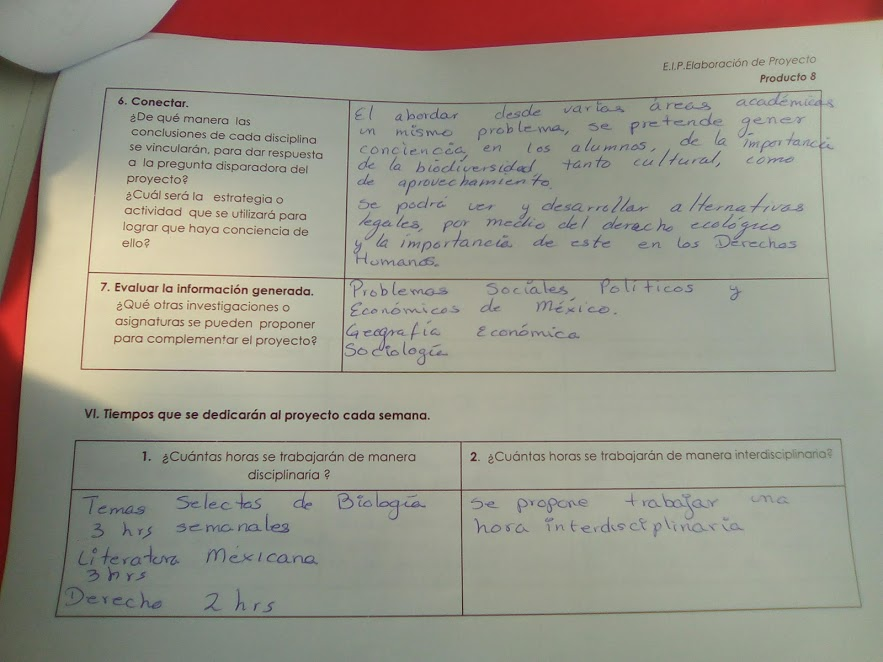 E.I.P.Elaboración de Proyecto
Producto 8
6. Conectar.
¿De qué manera las
conclusiones de cada disciplina
se vincularán, para dar respuesta
a la pregunta disparadora del
proyecto?
¿Cuál será la estrategia o
actividad que se utilizará para
lograr que haya conciencia de
ello?
El abordar desde varias áreas académicas
un mismo problema, se pretende gener
conciencia en los alumnos, de la importancia
de la biodiversidad tanto cultural, como
de aprovechamiento.
Se podrá ver y desarrollar alternativas
legales, por medio del derecho ecológico
y la importancia de este en los Derechos
Humanos.
7. Evaluar la información generada.
¿Qué otras investigaciones o
asignaturas se pueden proponer
para complementar el proyecto?
Problemas Sociales Políticos y
Económicos de México.
Geografía Económica
Sociología
VI. Tiempos que se dedicarán al proyecto cada semana.
1. ¿Cuántas horas se trabajarán de manera
disciplinaria ?
2. ¿Cuántas horas se trabajarán de manera interdisciplinaria?
Temas Selectas de Biología
3 hrs semanales
Literatura Mexicana
3 hrs
Derecho 2 hrs
Se propone trabajar una
hora interdisciplinaria